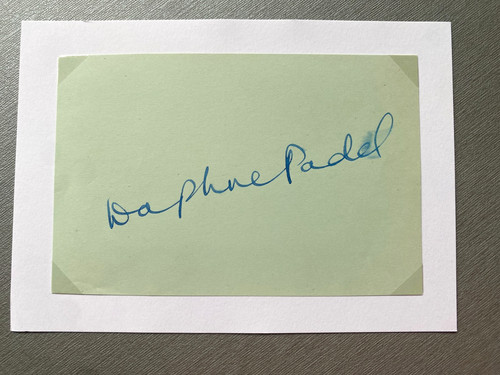 Daphne Padel